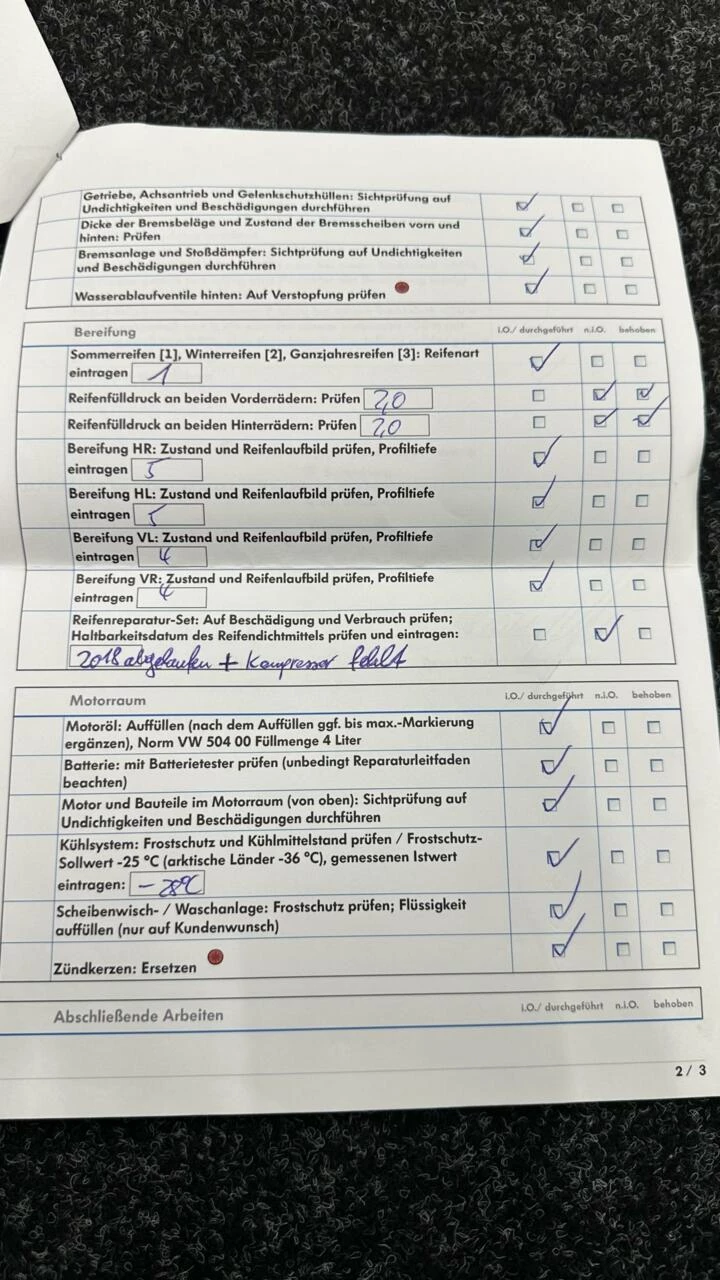 Getriebe, Achsantrieb und Gelenkschutzhüllen: Sichtprüfung auf
Undichtigkeiten und Beschädigungen durchführen
Dicke der Bremsbeläge und Zustand der Bremsscheiben vorn und
hinten: Prüfen
Bremsanlage und Stoßdämpfer: Sichtprüfung auf Undichtigkeiten
und Beschädigungen durchführen
Wasserablaufventile hinten: Auf Verstopfung prüfen
Bereifung i.O./ durchgeführt n.i.O. behoben
Sommerreifen [1], Winterreifen [2], Ganzjahresreifen [3]: Reifenart
eintragen 1
Reifenfülldruck an beiden Vorderrädern: Prüfen 2,0
Reifenfülldruck an beiden Hinterrädern: Prüfen 2,0
Bereifung HR: Zustand und Reifenlaufbild prüfen, Profiltiefe
eintragen 5
Bereifung HL: Zustand und Reifenlaufbild prüfen, Profiltiefe
eintragen 5
Bereifung VL: Zustand und Reifenlaufbild prüfen, Profiltiefe
eintragen 4
Bereifung VR: Zustand und Reifenlaufbild prüfen, Profiltiefe
eintragen 4
Reifenreparatur-Set: Auf Beschädigung und Verbrauch prüfen;
Haltbarkeitsdatum des Reifendichtmittels prüfen und eintragen:
2018 abgelaufen + Kompressor fehlt
Motorraum i.O./ durchgeführt n.i.O. behoben
Motoröl: Auffüllen (nach dem Auffüllen ggf. bis max.-Markierung
ergänzen), Norm VW 504 00 Füllmenge 4 Liter
Batterie: mit Batterietester prüfen (unbedingt Reparaturleitfaden
beachten)
Motor und Bauteile im Motorraum (von oben): Sichtprüfung auf
Undichtigkeiten und Beschädigungen durchführen
Kühlsystem: Frostschutz und Kühlmittelstand prüfen / Frostschutz-
Sollwert -25 °C (arktische Länder -36 °C), gemessenen Istwert
eintragen: -28°C
Scheibenwisch- / Waschanlage: Frostschutz prüfen; Flüssigkeit
auffüllen (nur auf Kundenwunsch)
Zündkerzen: Ersetzen
Abschließende Arbeiten i.O./ durchgeführt n.i.O. behoben
2 / 3